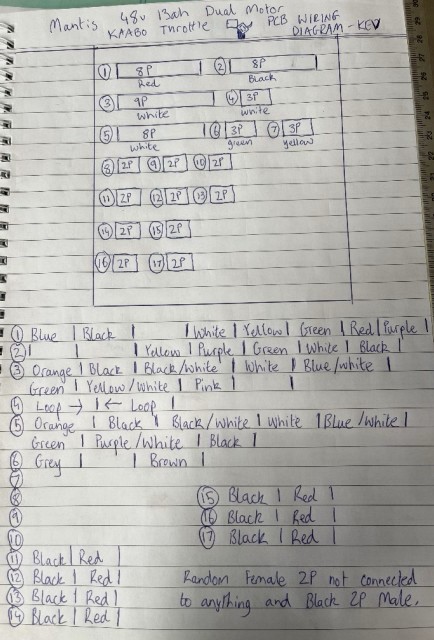 Mantis 48v 13ah Dual Motor
KAABO Throttle PCB WIRING
DIAGRAM - KEV
① 8P ② 8P
Red Black
③ 9P ④ 3P
White white
⑤ 8P ⑥ 3P ⑦ 3P
white green yellow
⑧ 2P ⑨ 2P ⑩ 2P
⑪ 2P ⑫ 2P ⑬ 2P
⑭ 2P ⑮ 2P
⑯ 2P ⑰ 2P
① Blue | Black | | White | Yellow | Green | Red | Purple |
② | | Yellow | Purple | Green | White | Black |
③ Orange | Black | Black/White | White | Blue/white |
Green | Yellow/White | Pink | |
④ Loop → | ← Loop |
⑤ Orange | Black | Black/White | White | Blue/White |
Green | Purple/White | Black |
⑥ Grey | | Brown |
⑦
⑧ ⑮ Black | Red |
⑨ ⑯ Black | Red |
⑩ ⑰ Black | Red |
⑪ Black | Red |
⑫ Black | Red | Random Female 2P not connected
⑬ Black | Red | to anything and Black 2P Male.
⑭ Black | Red |